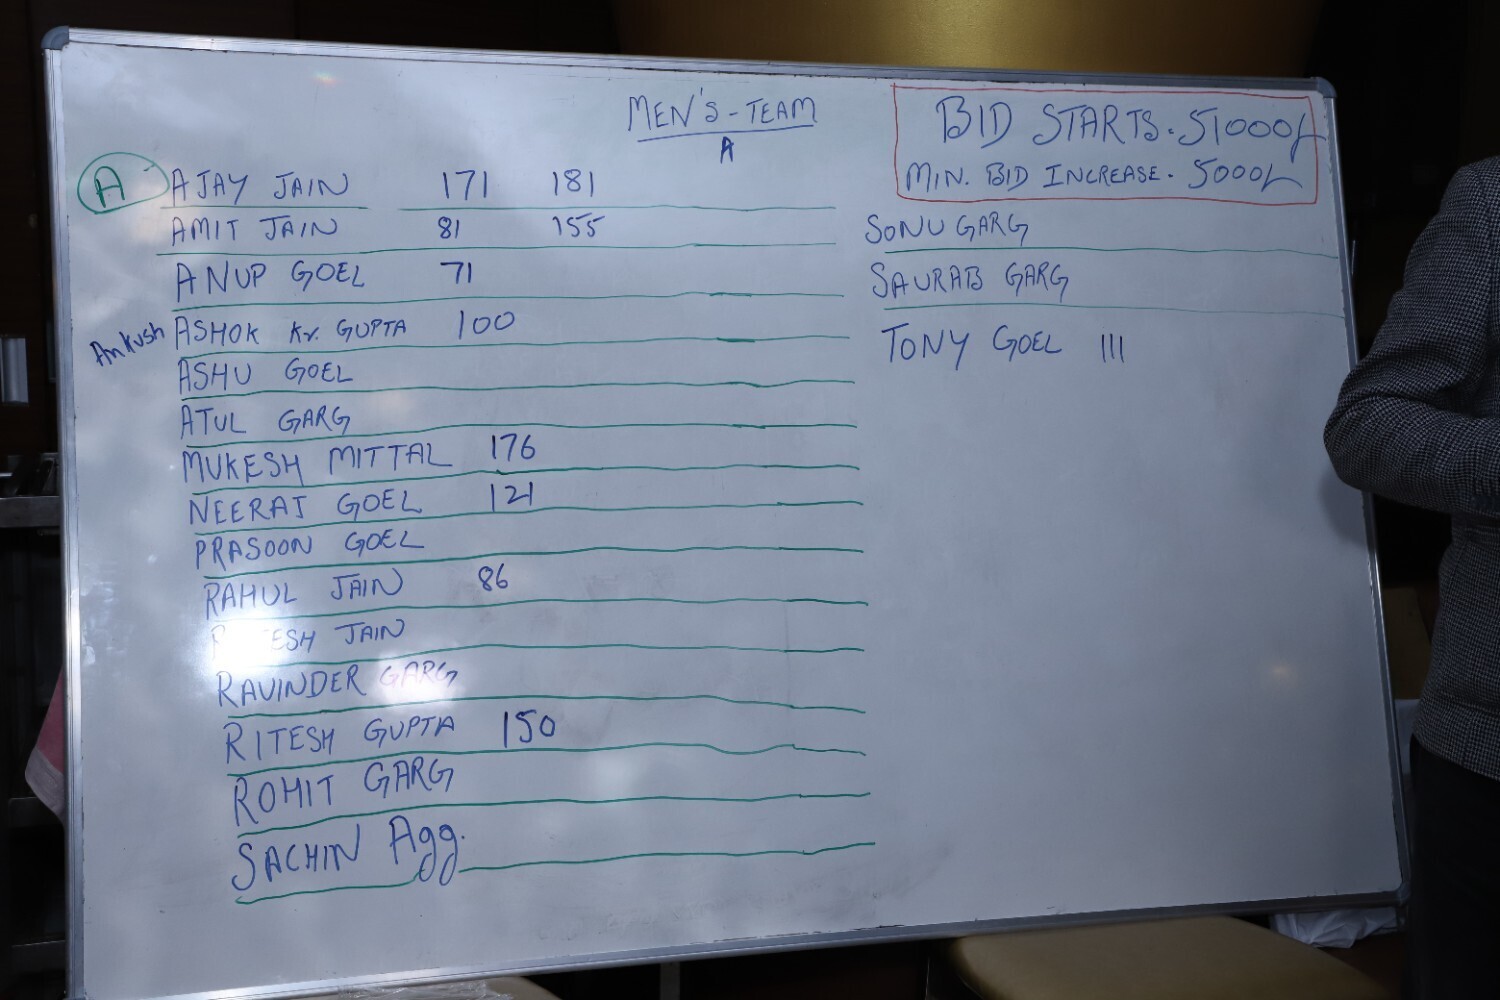 MEN'S - TEAM
A
BID STARTS. 51000/-
MIN. BID INCREASE. 5000/-
A AJAY JAIN 171 181
AMIT JAIN 81 155
ANUP GOEL 71
Ankush ASHOK Kr. GUPTA 100
ASHU GOEL
ATUL GARG
MUKESH MITTAL 176
NEERAJ GOEL 121
PRASOON GOEL
RAHUL JAIN 86
JAIN
RAVINDER GARG
RITESH GUPTA 150
ROHIT GARG
SACHIN Agg.
SONU GARG
SAURAB GARG
TONY GOEL 111